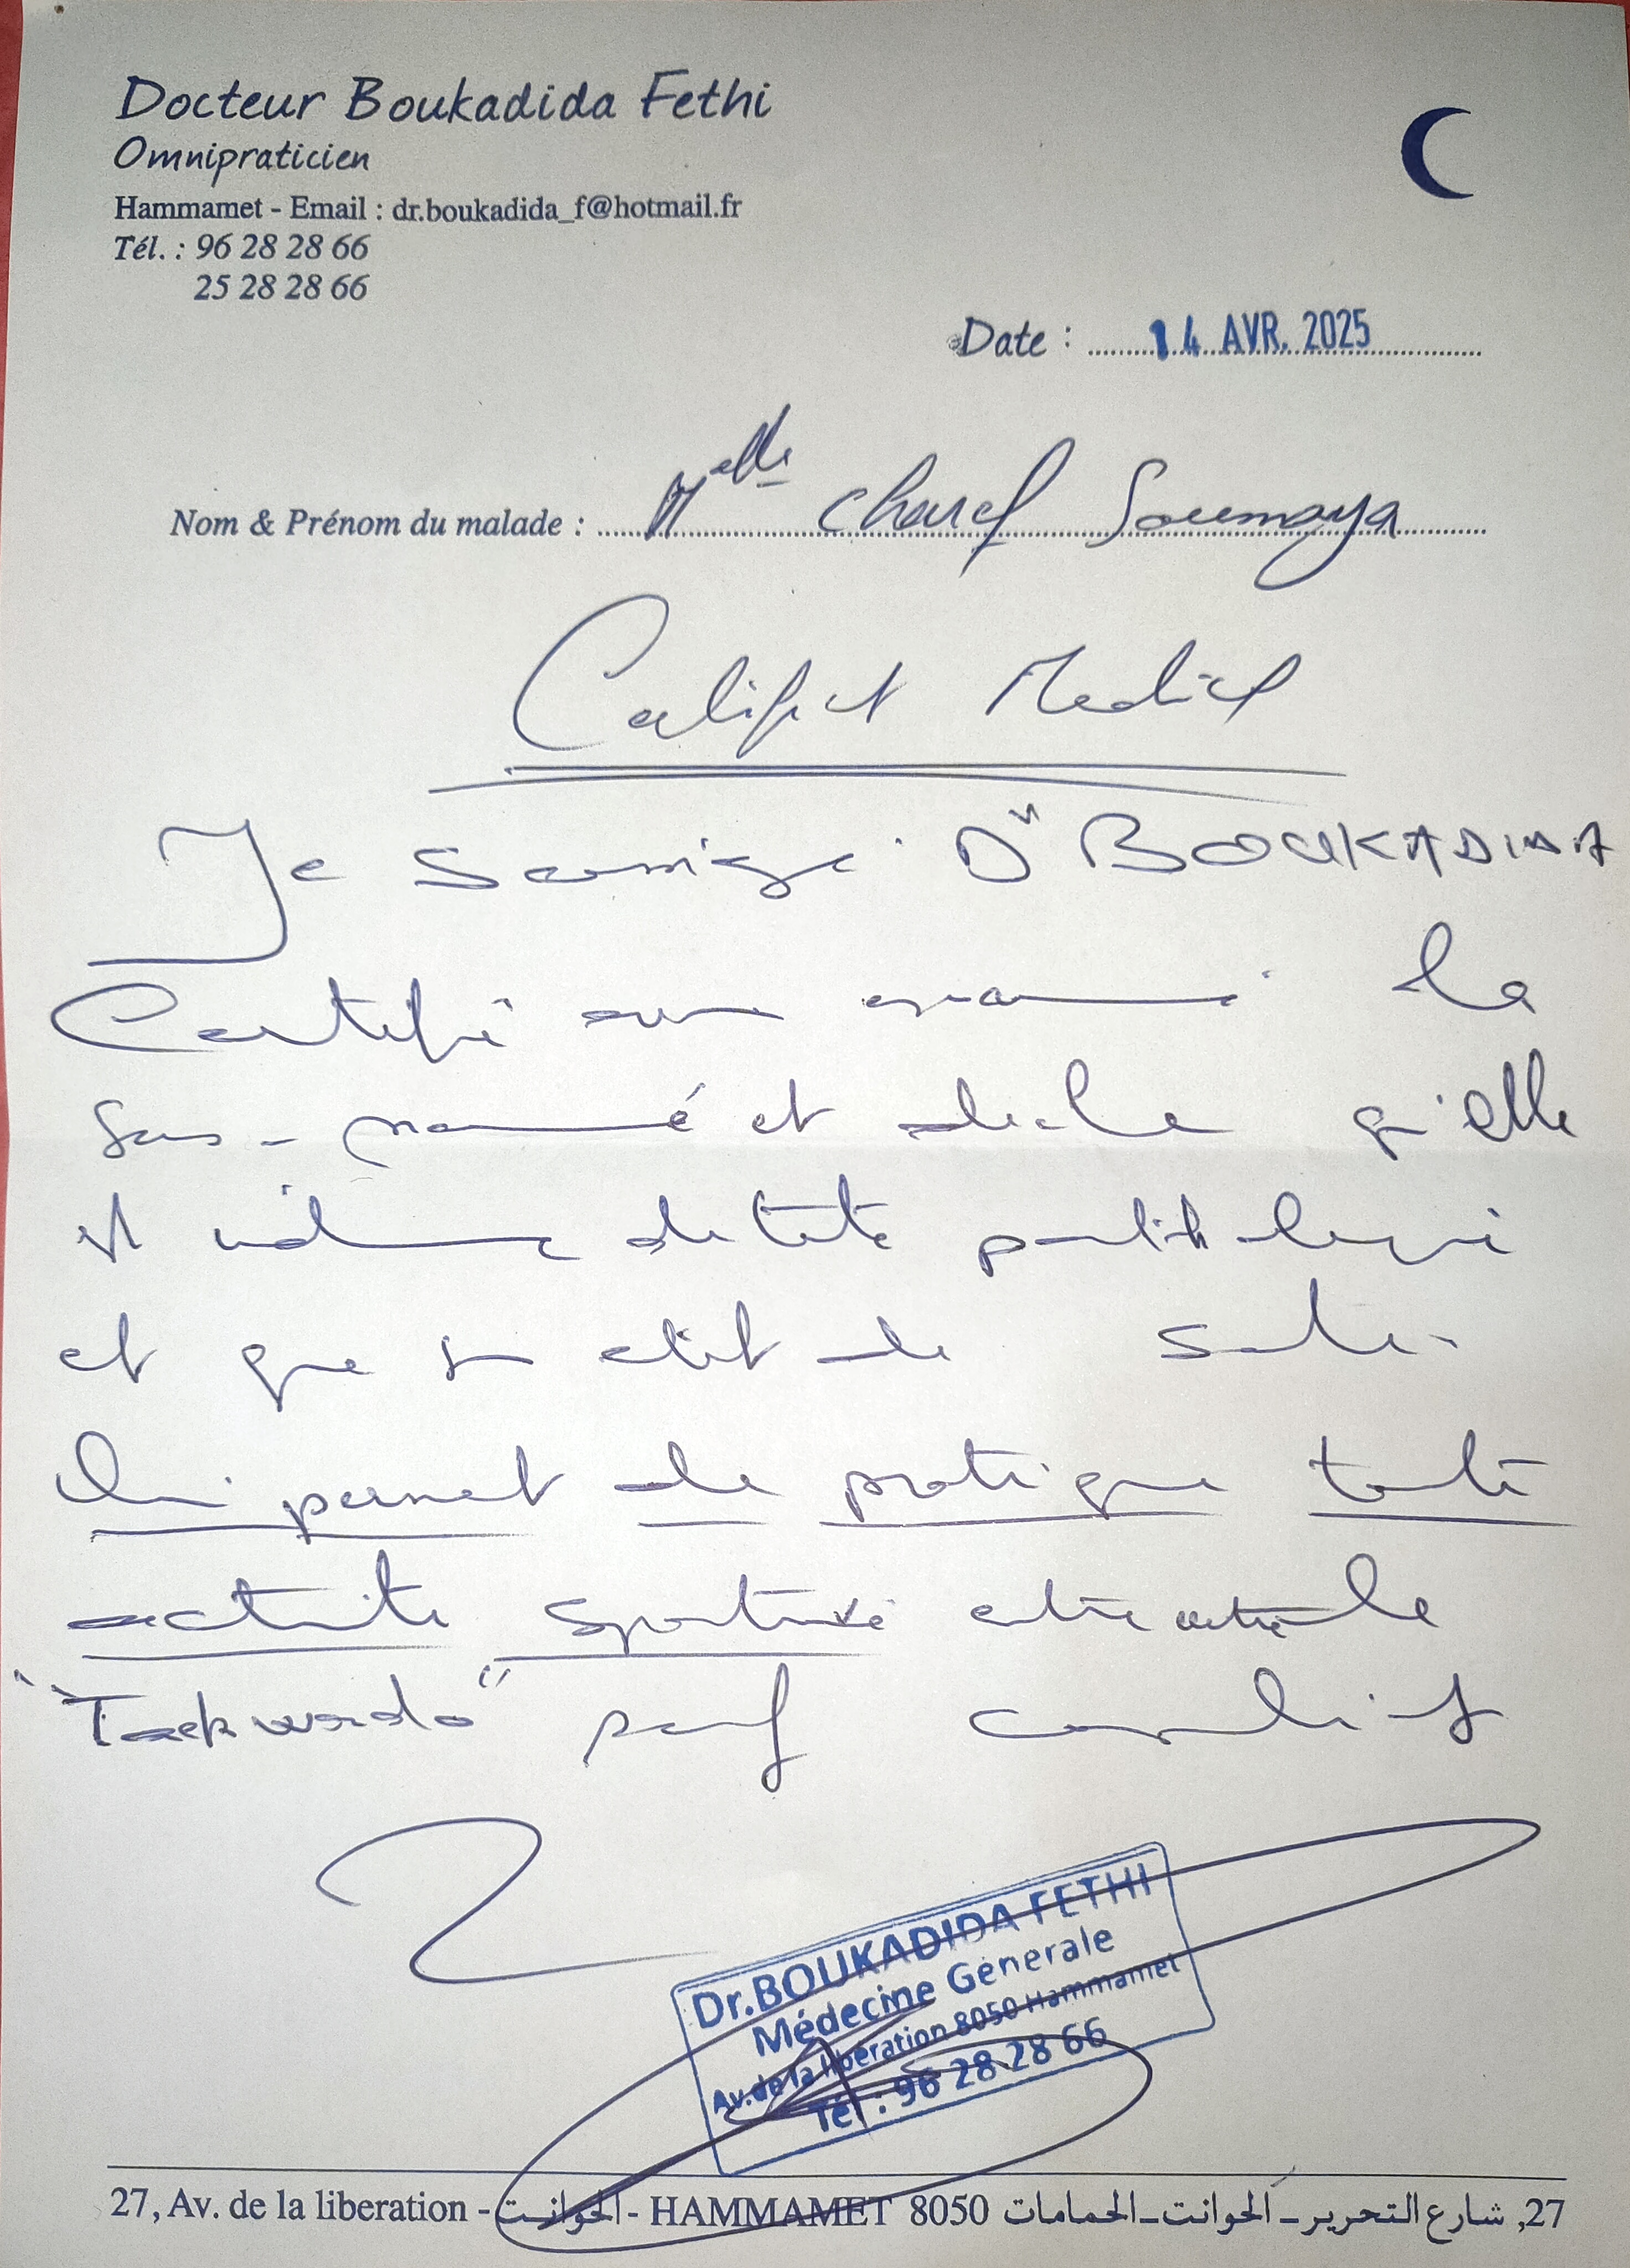 Docteur Boukadida Fethi
Omnipraticien
Hammamet - Email : dr.boukadida_f@hotmail.fr
Tél. : 96 28 28 66
25 28 28 66
Date : 14 AVR. 2025
Nom & Prénom du malade : Melle Charef Soumaya
Certificat Medical
Je Soussigné Dr BOUKADIDA
Certifie avoir examiné la
Sus-nommé et déclare qu'elle
est indemne de toute pathologie
et que son état de santé
lui permet de pratique toute
activité sportive entre autre le
"Taekwondo" sauf
Dr.BOUKADIDA FETHI
Médecine Générale
Av.de la liberation 8050 Hammamet
Tél : 96 28 28 66
27, Av. de la liberation - الحوانت - HAMMAMET 8050 27, شارع التحرير - الحوانت - الحمامات